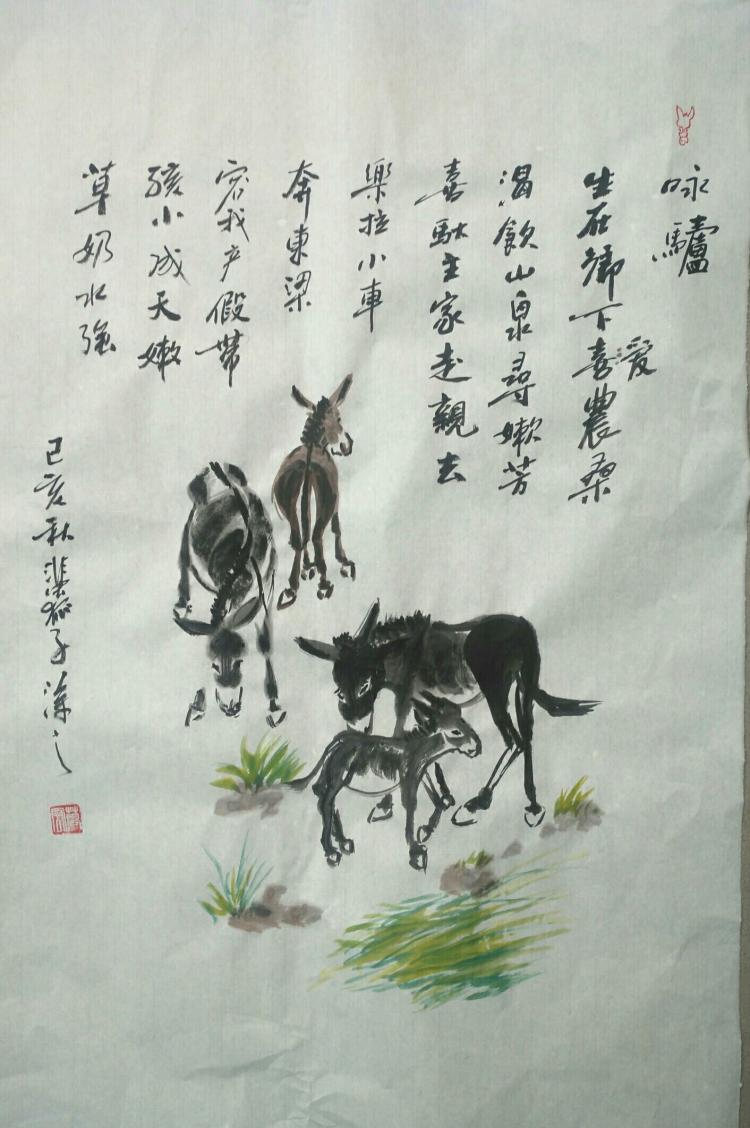 咏驢
生在鄉下喜農桑
愛
渴飲山泉尋嫩芳
喜馱主家走親去
樂拉小車
奔東梁
容我产假帶
孩小成天嫩
草奶水強
己亥秋
子涂之